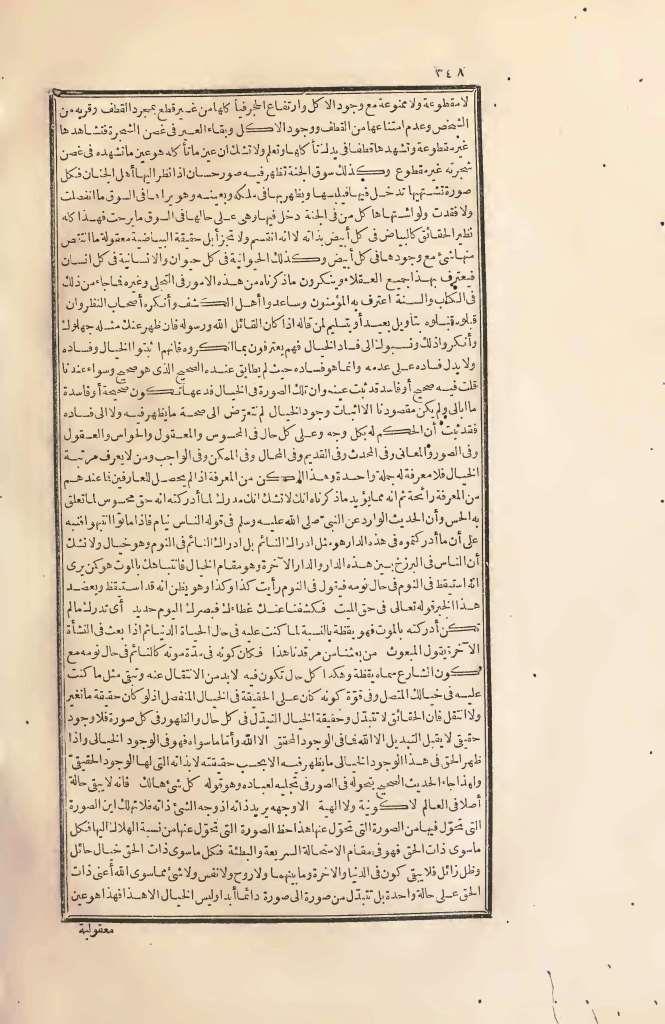 ٣٤٨
لا مقطوعة ولا ممنوعة مع وجود الاكل وارتفاع الحجر فيأكلها من غير قطع بمجرد القطف وقربه من
الشخص وعدم امتناعها من القطف ووجود الاكل وبقاء العين في غصن الشجرة فتشاهدها
غير مقطوعة وتشهدها قطفا في يدك تأكلها وتعلم ولا تشك ان عين ما تأكله هو عين ما تشهده في غصن
شجرته غير مقطوع وكذلك سوق الجنة تظهر فيه صور حسان اذا نظر اليها أهل الجنان فكل
صورة تشتهيها تدخل فيها فيلبسها ويظهر بها في ملكه وبعينه وهو يراها في السوق ما انفصلت
ولا فقدت ولو اشتهاها كل من في الجنة دخل فيها وهي على حالها في السوق ما برحت فهذا كله
نظير الحقائق كالبياض في كل أبيض بذاته لا انه انقسم ولا تجزأ بل حقيقة البياضية معقولة ما انتقص
منها شئ مع وجودها في كل أبيض وكذلك الحيوانية في كل حيوان والانسانية في كل انسان
فيعترف بهذا جميع العقلاء وينكرون ما ذكرناه من هذه الامور في التجلي وغيره فما جاء من ذلك
في الكتاب والسنة اعترف به المؤمنون وساعدوا أهل الكشف وأنكره أصحاب النظر وان
قبلوه قبلوه بتأويل بعيد أو بتسليم لمن قاله اذا كان القائل الله ورسوله فان ظهر عنك مثله جهلوك
وأنكروا ذلك ونسبوك الى فساد الخيال فهم يعترفون بما انكروه فانهم اثبتوا الخيال وفساده
ولا يدل فساده على عدمه وانما هو فساده حيث لم يطابق عنده الصحيح الذي هو صحيح وسواء عندنا
قلت فيه صحيح أو فاسد قد ثبت عينه وان تلك الصورة في الخيال فدعها تكون صحيحة أو فاسدة
ما ابالي ولم يكن مقصودنا الا اثبات وجود الخيال لم نتعرض الى صحة ما يظهر فيه ولا الى فساده
فقد ثبت أن الحكم له بكل وجه وعلى كل حال في المحسوس والمعقول والحواس والعقول
وفي الصور والمعاني وفي المحدث وفي القديم وفي المحال وفي الممكن وفي الواجب ومن لا يعرف مرتبة
الخيال فلا معرفة له جملة واحدة وهذا الركن من المعرفة اذا لم يحصل للعارفين فما عندهم
من المعرفة رائحة ثم انه مما يؤيد ما ذكرناه انك لا تشك انك مدرك لما أدركته انه حق محسوس لما تعلق
به الحس وأن الحديث الوارد عن النبي صلى الله عليه وسلم في قوله الناس نيام فاذا ماتوا انتبهوا فنبه
على أن ما أدركتموه في هذه الدار هو مثل ادراك النائم بل ادراك النائم في النوم وهو خيال ولا تشك
أن الناس في البرزخ بين هذه الدار والدار الآخرة وهو مقام الخيال فانتباهك بالموت هو كمن يرى
انه استيقظ في النوم في حال نومه فيقول في النوم رأيت كذا وكذا وهو يظن انه قد استيقظ وبعضد
هذا الخبر قوله تعالى في حق الميت فكشفنا عنك غطاءك فبصرك اليوم حديد أي تدرك ما لم
تكن أدركته بالموت فهو يقظة بالنسبة لما كنت عليه في حال الحياة الدنيا ثم اذا بعث في النشأة
الآخرة يقول المبعوث من بعثنا من مرقدنا هذا فكان كونه في مدة موته كالنائم في حال نومه مع
كون الشارع سماه يقظة وهكذا كل حال تكون فيه لا بد من الانتقال عنه وتبقى مثل ما كنت
عليه في خيالك المتصل وفي قوة كونه كان على الحقيقة في الخيال المنفصل اذ لو كان حقيقة ما تغير
ولا انتقل فان الحقائق لا تتبدل وحقيقة الخيال التبدل في كل حال والظهور في كل صورة فلا وجود
حقيقي لا يقبل التبديل الا الله فما في الوجود المحقق الا الله وأما ما سواه فهو في الوجود الخيالي واذا
ظهر الحق في هذا الوجود الخيالي ما يظهر فيه الا بحسب حقيقته لا بذاته التي لها الوجود الحقيقي
ولهذا جاء الحديث الصحيح بتحوله في الصور في تجليه لعباده وهو قوله كل شئ هالك فانه لا يبقى حالة
أصلا في العالم لا كونية ولا الهية الا وجهه يريد ذاته اذ وجه الشئ ذاته فلا تهلك اين الصورة
التي تحول فيها من الصورة التي تحول عنها هذا حظ الصورة التي تحول عنها من نسبة الهلاك اليها فكل
ما سوى ذات الحق فهو في مقام الاستحالة السريعة والبطئة فكل ما سوى ذات الحق خيال حائل
وظل زائل فلا يبقى كون في الدنيا والآخرة وما بينهما ولا روح ولا نفس ولا شئ مما سوى الله أعني ذات
الحق على حالة واحدة بل تتبدل من صورة الى صورة دائما أبدا وليس الخيال الا هذا فهذا هو عين
معقولية